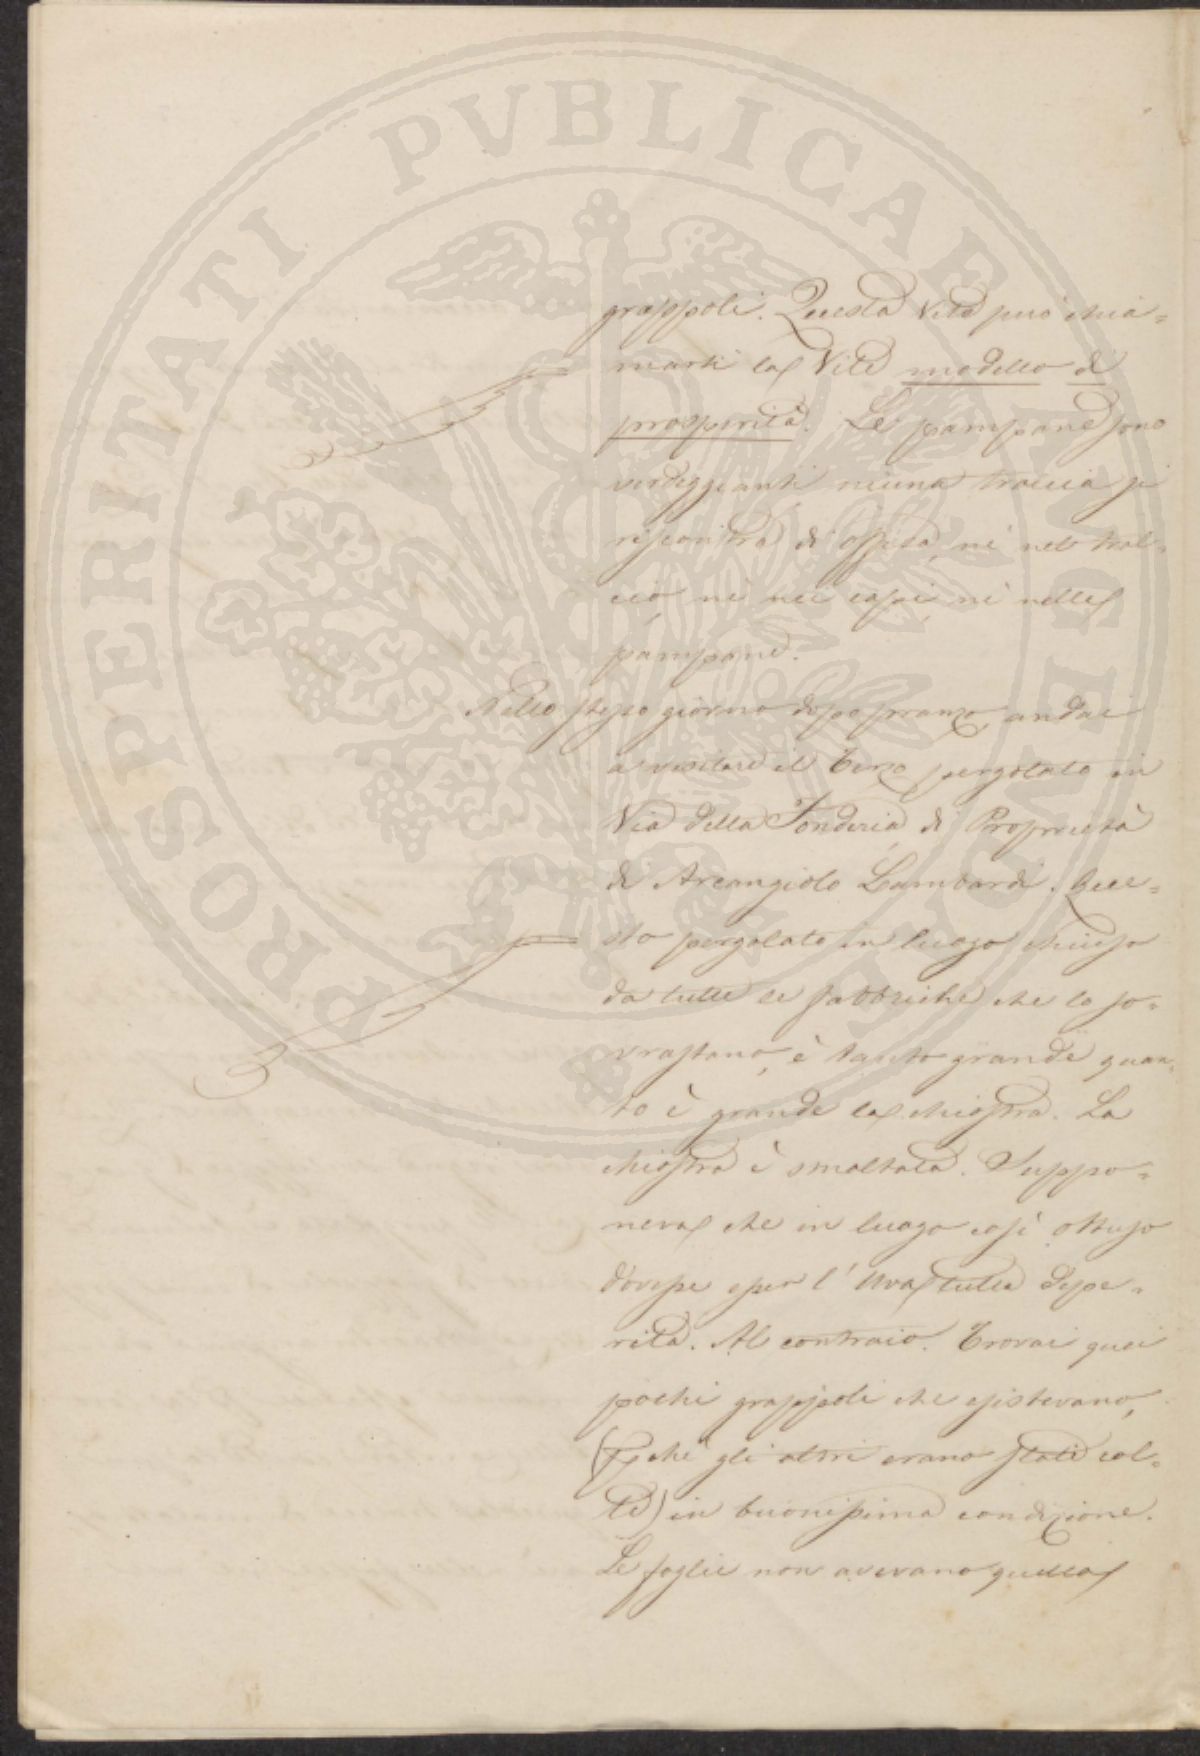 PROSPERITATI PVBLICAE AVGENDAE
grappoli. Questa Vite può chia=
marsi la Vite modello di
prosperità. Le pampane sono
verdeggianti niuna traccia si
riscontra di offesa, nè nel tral=
cio, nè nei capi, nè nelle
pampane.
Nello stesso giorno dopo pranzo, andai
a visitare il terzo pergolato in
Via della Fonderia, di Proprietà
di Arcangiolo Lombardi. Que=
sto pergolato in luogo chiuso
da tutte le fabbriche che lo so=
vrastano, è tanto grande quan=
to è grande la chiostra. La
chiostra è smaltata. Suppo=
neva che in luogo così ottuso
dovesse esser l'Uva tutta depe=
rita. Al contraio. Trovai quei
pochi grappoli che esistevano,
(chè gli altri erano stati col=
ti) in buonissima condizione.
Le foglie non avevano quella